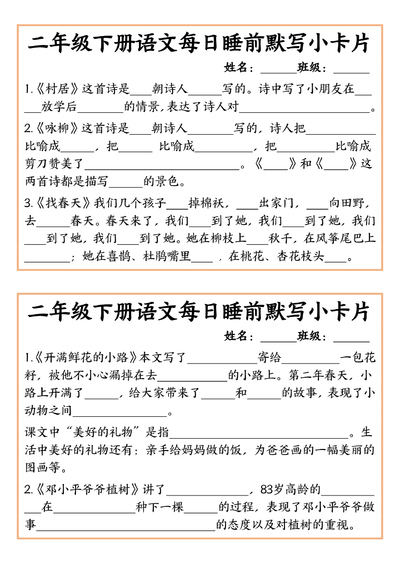 二年级下册语文每日睡前默写小卡片
姓名：______班级：______
1.《村居》这首诗是____朝诗人______写的。诗中写了小朋友在___
____放学后________的情景,表达了诗人对______________________。
2.《咏柳》这首诗是____朝诗人________写的，诗人把____________
比喻成______，把______ 比喻成__________，把__________比喻成
剪刀赞美了____________________________。《____》和《____》这
两首诗都是描写______的景色。
3.《找春天》我们几个孩子____掉棉袄，____出家门，____向田野，
去______春天。春天来了，我们____到了她，我们____到了她，我们
____到了她，我们____到了她。她在柳枝上____秋千，在风筝尾巴上
________；她在喜鹊、杜鹃嘴里____ ，在桃花、杏花枝头____。
二年级下册语文每日睡前默写小卡片
姓名：______班级：______
1.《开满鲜花的小路》本文写了____________寄给__________一包花
籽，被他不小心漏掉在去____________的小路上。第二年春天，小
路上开满了______，给大家带来了______和______的故事，表现了小
动物之间________________。
课文中“美好的礼物”是指______________________________。生
活中美好的礼物还有：亲手给妈妈做的饭，为爸爸画的一幅美丽的
图画等。
2.《邓小平爷爷植树》讲了______________，83岁高龄的__________
____在______________种下一棵______的过程，表现了邓小平爷爷做
事______________________________的态度以及对植树的重视。